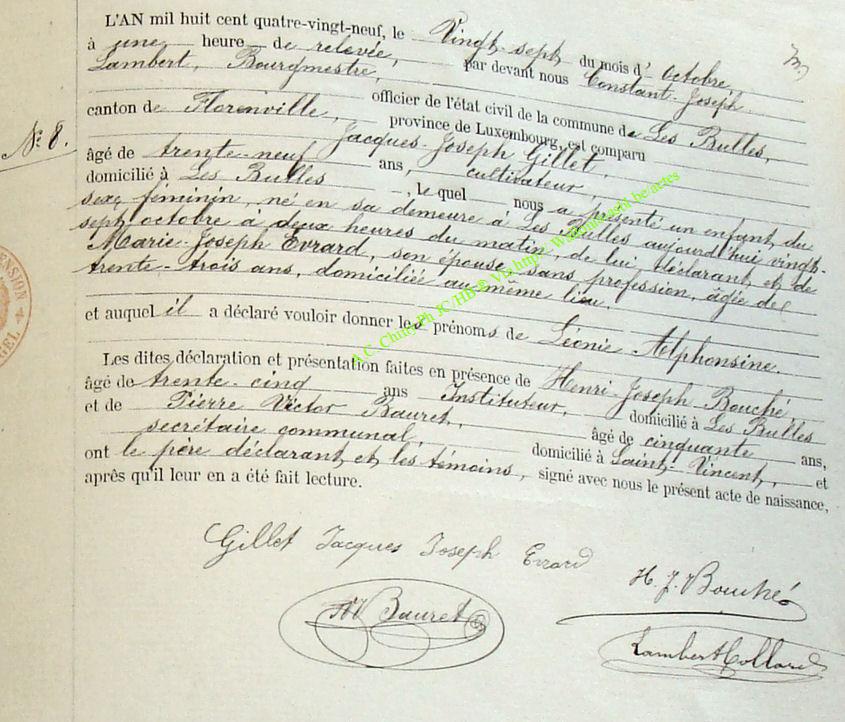 L'AN mil huit cent quatre-vingt-neuf, le Vingt-sept du mois d' octobre,
à une heure de relevée, par devant nous Constant-Joseph
Lambert, Bourgmestre,
officier de l'état civil de la commune de Les Bulles,
canton de Florenville, province de Luxembourg, est comparu
N° 8.
Jacques-Joseph Gillet,
âgé de trente-neuf ans, cultivateur,
domicilié à Les Bulles, le quel nous a présenté un enfant du
sexe féminin, né en sa demeure à Les Bulles aujourd'hui vingt-
sept octobre à deux heures du matin, de lui déclarant, et de
Marie-Joseph Evrard, son épouse sans profession, âgée de
trente-trois ans, domiciliée au même lieu.
et auquel il a déclaré vouloir donner les prénoms de Léonie Alphonsine.
Les dites déclaration et présentation faites en présence de Henri-Joseph Bouché
âgé de trente-cinq ans Instituteur, domicilié à Les Bulles
et de Pierre Victor Bauret, âgé de cinquante ans,
secrétaire communal, domicilié à Saint-Vincent, et
ont le père déclarant et les témoins, signé avec nous le présent acte de naissance,
après qu'il leur en a été fait lecture.
Gillet Jacques Joseph Evrard
H. J. Bouché
Bauret
Lambert Collard
A.C. Chiny Ph JC/HB
PENSION